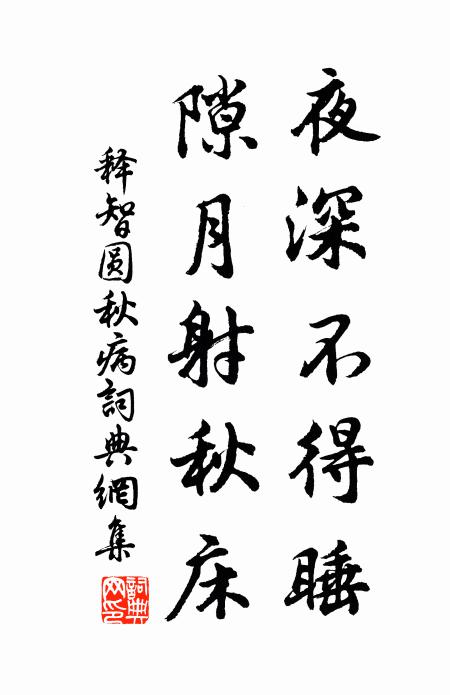 夜深不得睡
隙月射秋床
释智圆秋病詞典網集
詞典